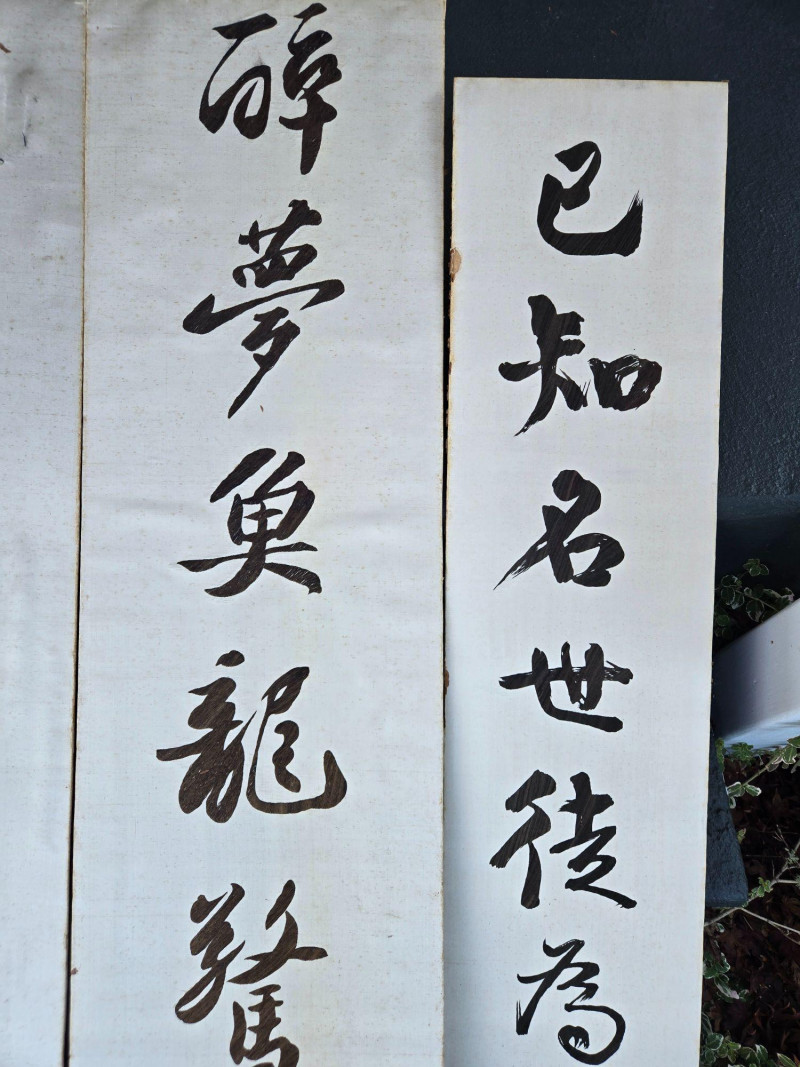 已知名世徒為
醉夢魚龍驚